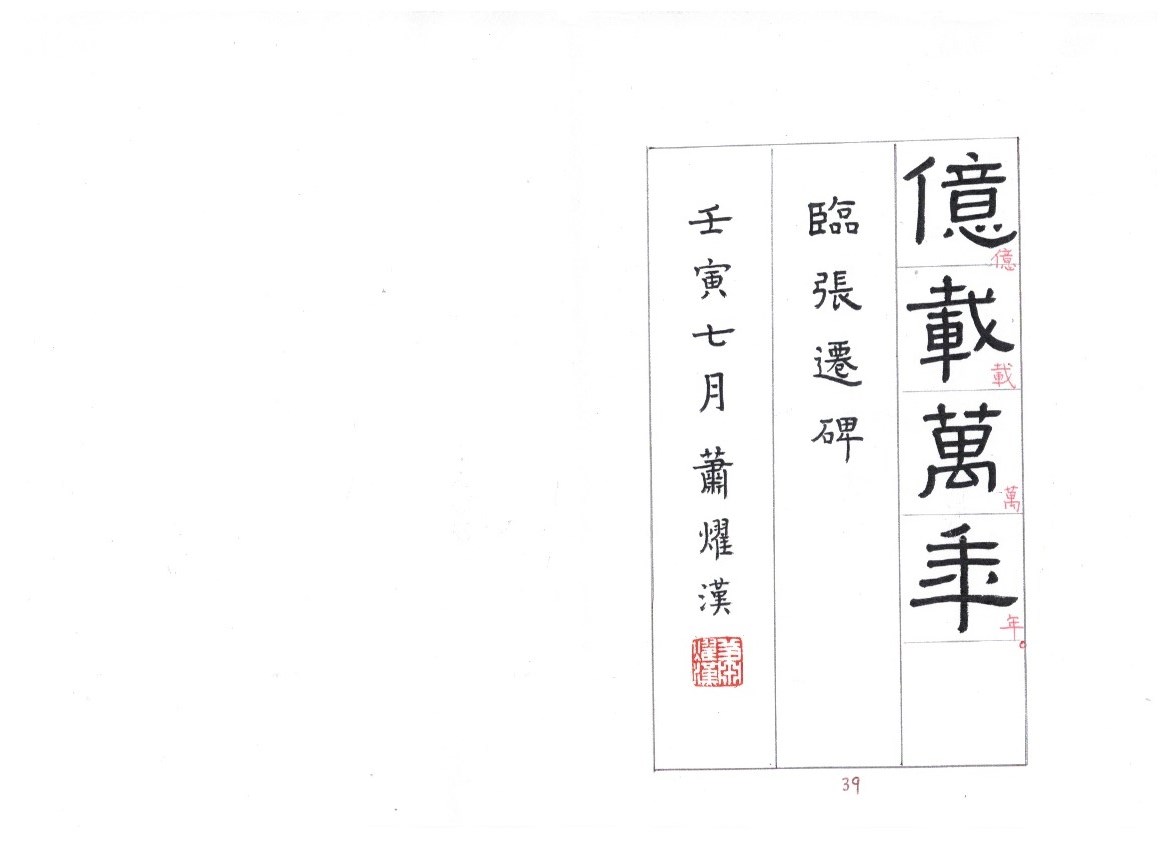 億載萬年
億載萬年。
臨張遷碑
壬寅七月蕭燿漢
蕭燿漢
39